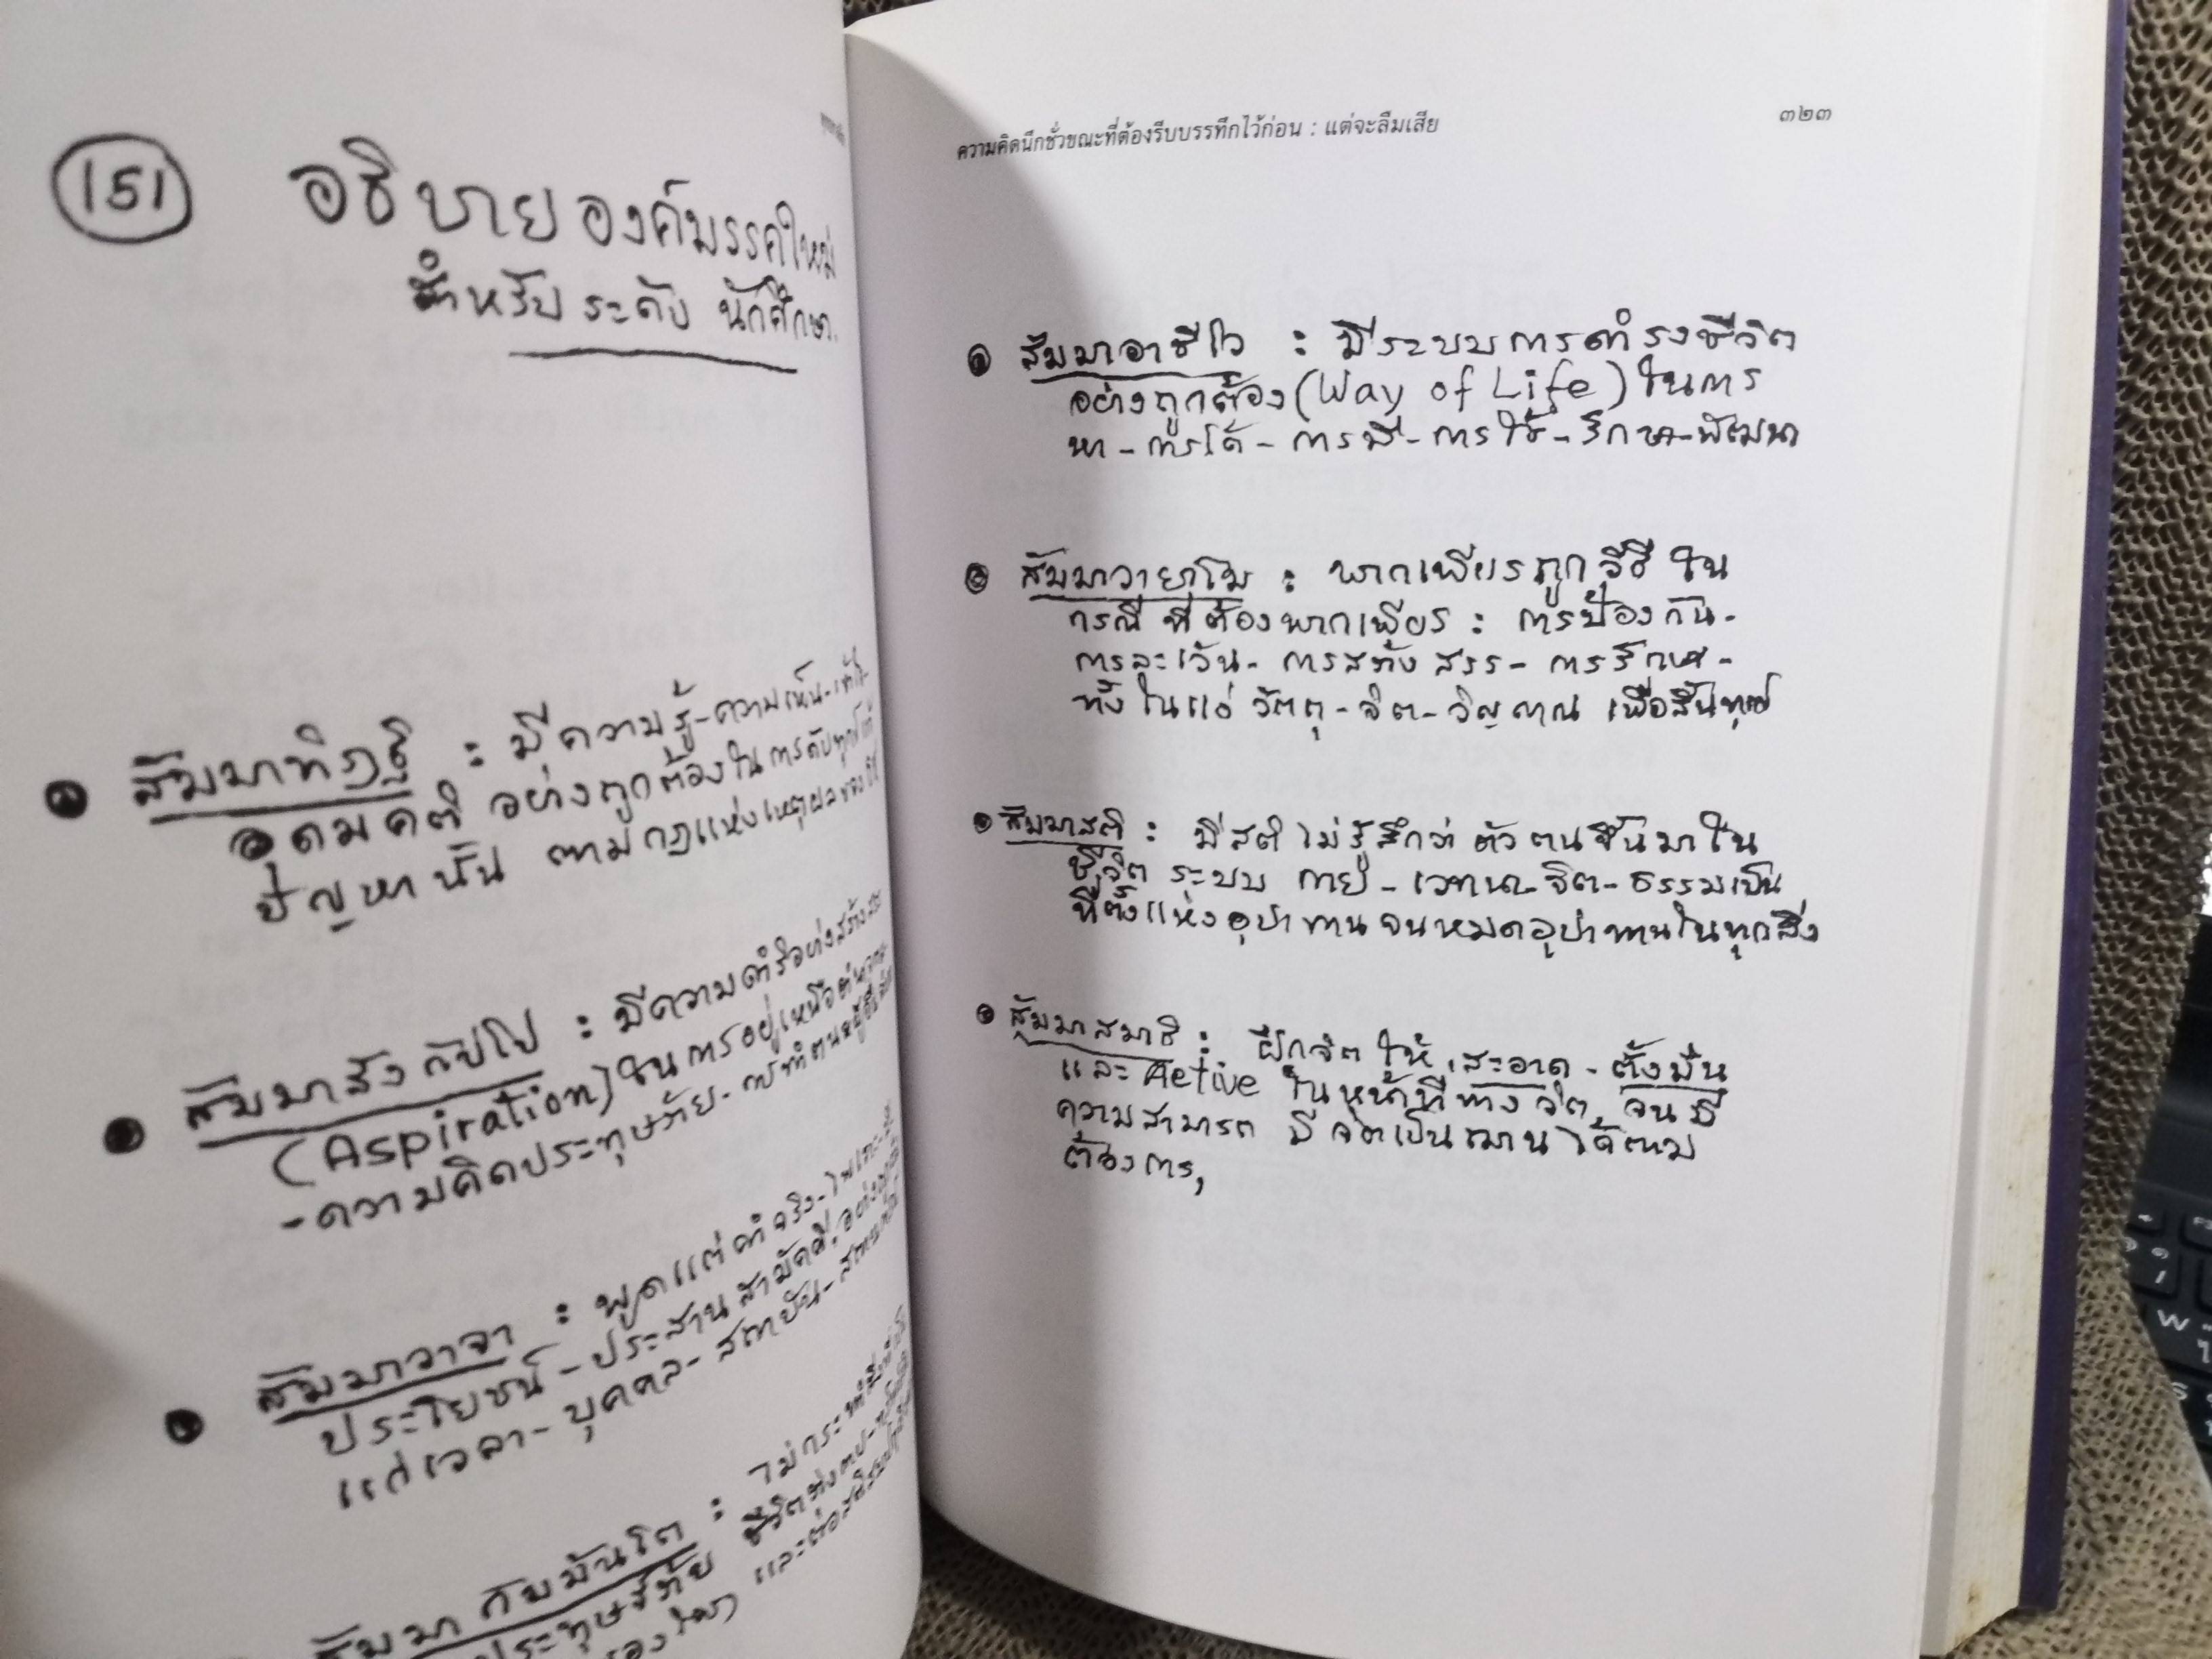 151
อธิบายองค์มรรคใหม่
สำหรับระดับ นักศึกษา.
สัมมาทิฏฐิ : มีความรู้-ความเห็น-เข้าใจ-
อุดมคติ อย่างถูกต้องในการดับทุกข์
ปัญหานั้น ตามกฎแห่งเหตุผลของ
สัมมาสังกัปโป : มีความดำริอย่าง
(Aspiration) ในการอยู่เหนือ
-ความคิดประทุษภัย-
สัมมาวาจา : พูดแต่คำจริง-ไพเราะ-
ประโยชน์-ประสานสามัคคี, อย่าง
แก่เวลา-บุคคล-สถาบัน-
สัมมากัมมันโต : ไม่กระทำ
ประทุษร้าย ชีวิต
และต่อ
ความคิดนึกชั่วขณะที่ต้องรีบบรรทึกไว้ก่อน : แต่จะลืมเสีย
๓๒๓
สัมมาอาชีโว : มีระบบการดำรงชีวิต
อย่างถูกต้อง (Way of Life) ในการ
หา-การได้-การมี-การใช้-รักษา-พัฒนา
สัมมาวายาโม : พากเพียรถูกวิธี ใน
กรณี ที่ต้องพากเพียร : การป้องกัน-
การละเว้น-การสร้างสรร-การรักษา-
ทั้งในแง่ วัตถุ-จิต-วิญญาณ เพื่อสิ้นทุกข์
สัมมาสติ : มีสติ ไม่รู้สึกว่า ตัวตนขึ้นมาใน
ชีวิต ระบบ กาย-เวทนา-จิต-ธรรมเป็น
ที่ตั้งแห่งอุปาทานจนหมดอุปาทานในทุกสิ่ง
สัมมาสมาธิ : ฝึกจิต ให้ สะอาด-ตั้งมั่น
และ Active ในหน้าที่ทางจิต, จนมี
ความสามารถ มีจิตเป็นฌาน ได้ตาม
ต้องการ,